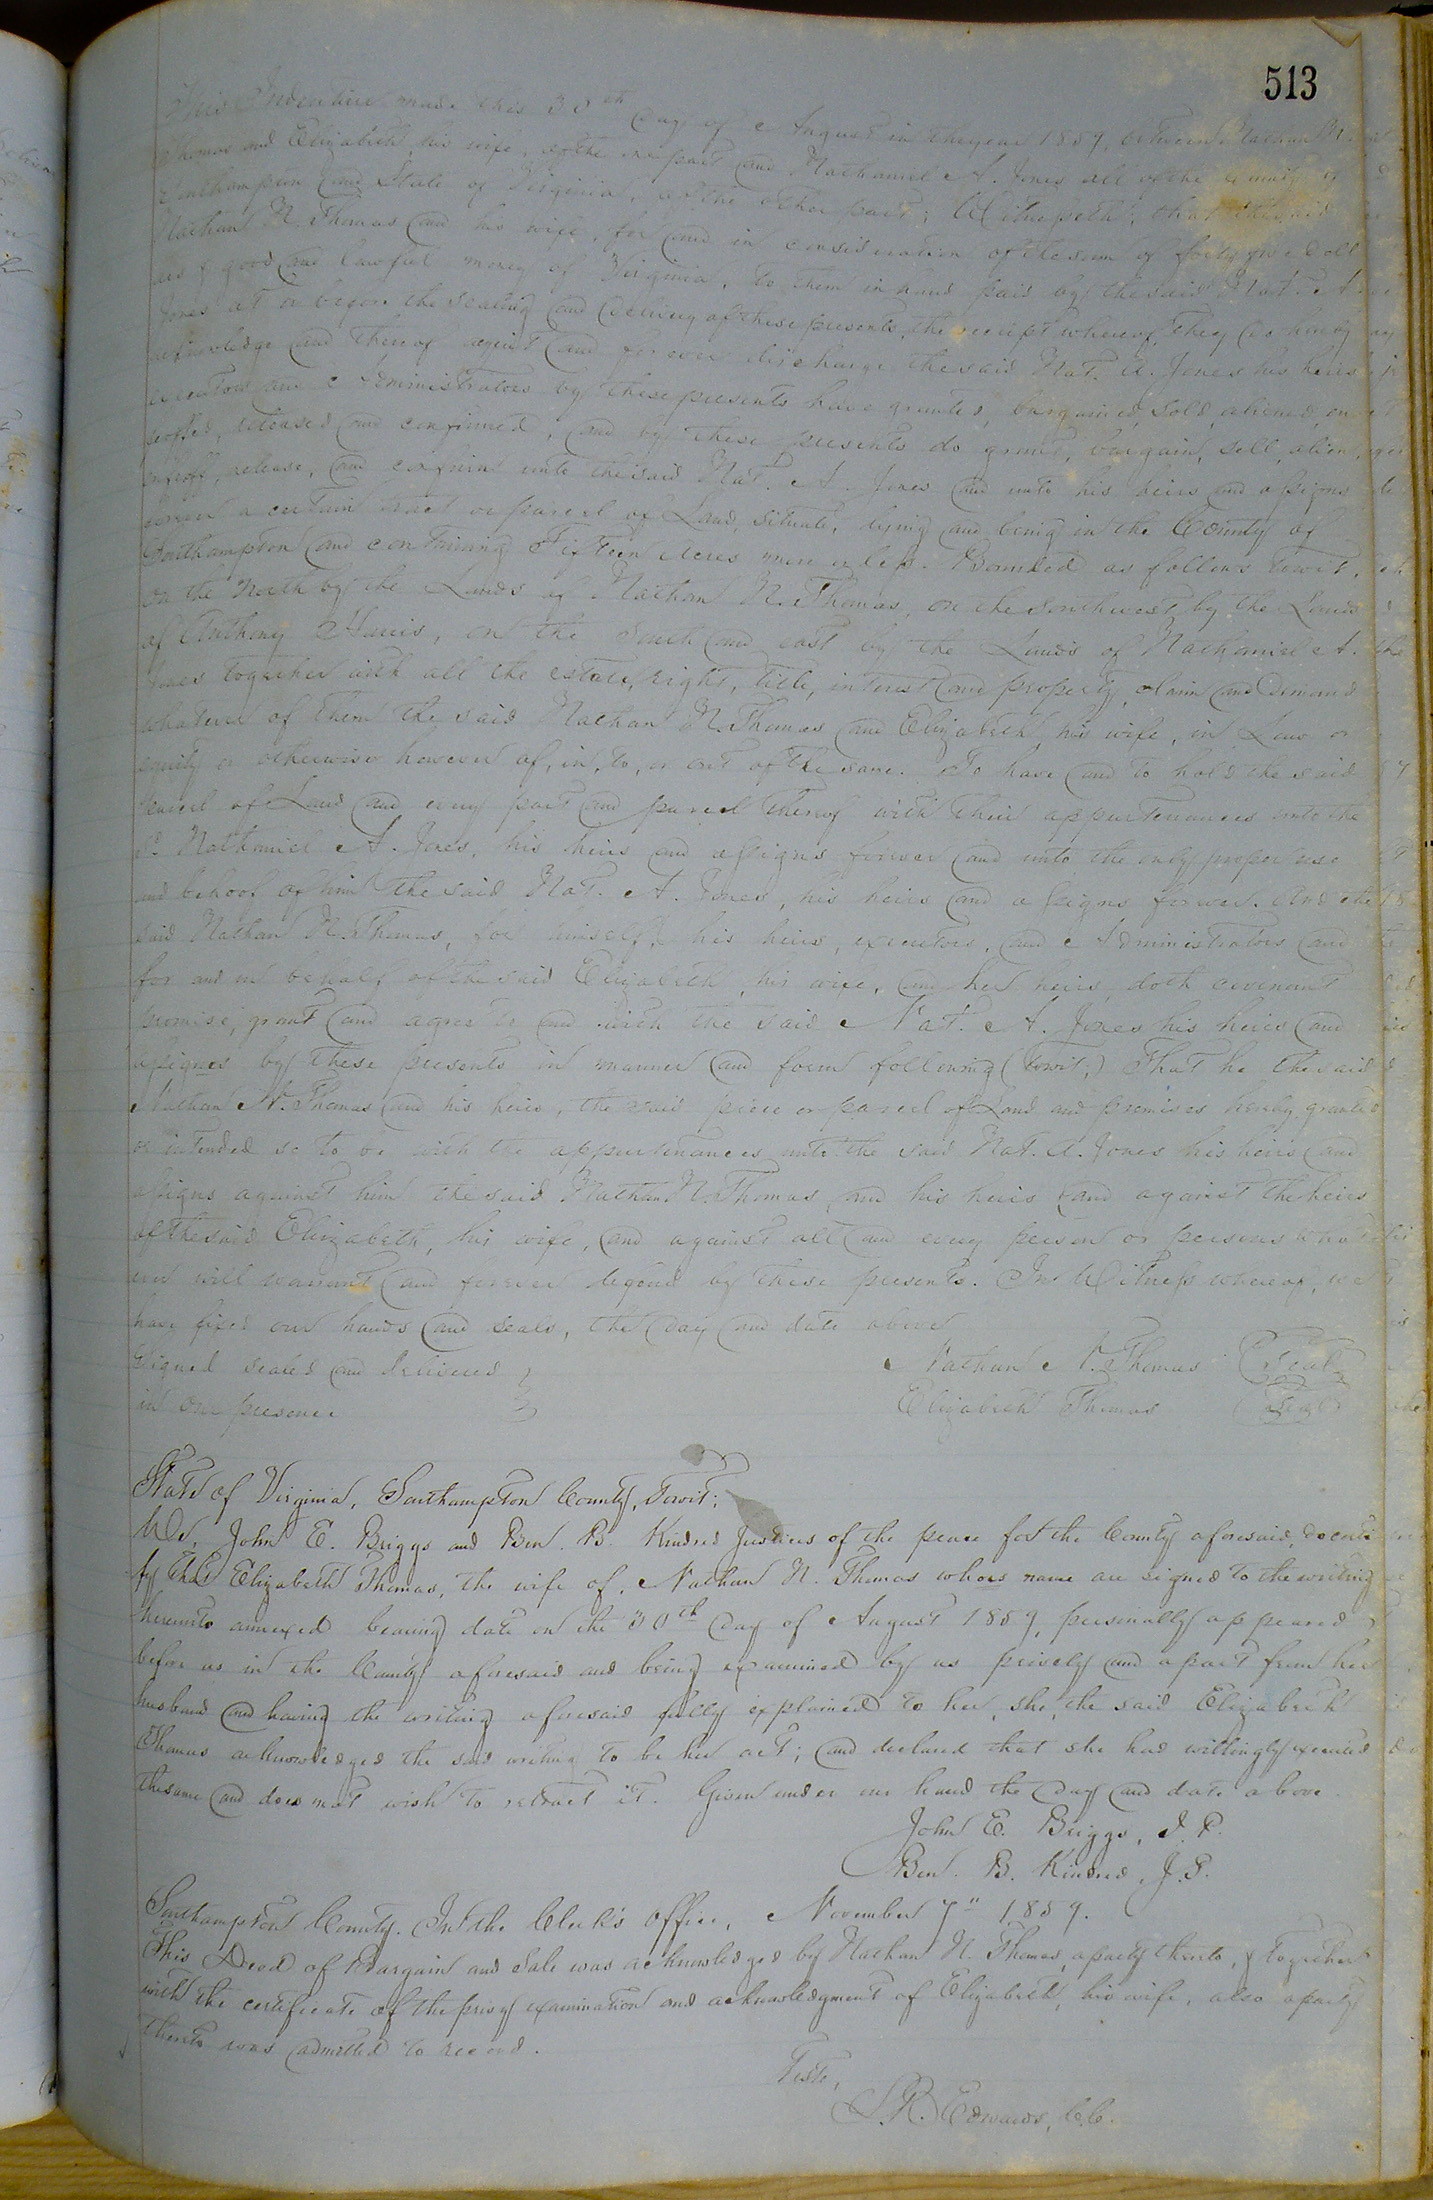 513
This Indenture made this 30th day of August in the year 1859, between Nathan N.
Thomas and Elizabeth his wife, of the one part and Nathaniel A. Jones all of the County of
Southampton and State of Virginia, of the other part; Witnesseth; that the said
Nathan N. Thomas and his wife, for and in consideration of the sum of forty five doll
ars of good and lawful money of Virginia, to them in hand paid by the said Nat. A.
Jones at or before the sealing and delivery of these presents, the receipt whereof, they do hereby
acknowledge and thereof acquit and forever discharge the said Nat. A. Jones his heirs
executors and administrators by these presents have granted, bargained, sold, aliened, en
feoffed, released and confirmed, and by these presents do grant, bargain, sell, alien,
enfeoff, release, and confirm unto the said Nat. A. Jones and unto his heirs and assigns
forever a certain tract or parcel of Land, situate, lying and being in the County of
Southampton and containing Fifteen Acres more or less. Bounded as follows towit,
on the North by the Lands of Nathan N. Thomas, on the southwest by the Lands
of Anthony Harris, on the South and east by the Lands of Nathaniel A.
Jones together with all the estate, right, title, interest and property, claim and demand
whatever of them the said Nathan N. Thomas and Elizabeth his wife, in Law or
equity or otherwise however of, in, to, or out of the same. To have and to hold the said
parcel of Land and every part and parcel thereof with their appurtenances unto the
sd. Nathaniel A. Jones, his heirs and assigns forever and unto the only proper use
and behoof of him the said Nat. A. Jones, his heirs and assigns forever. And the
said Nathan N. Thomas, for himself, his heirs, executors, and Administrators and
for and in behalf of the said Elizabeth, his wife, and her heirs, doth covenant
promise, grant and agree to and with the said Nat. A. Jones his heirs and
assignes by these presents in manner and form following (towit;) That he the said
Nathan N. Thomas and his heirs, the said piece or parcel of Land and premises hereby granted
or intended so to be with the appurtenances unto the said Nat. A. Jones his heirs and
assigns against him the said Nathan N. Thomas, and his heirs and against the heirs
of the said Elizabeth, his wife, and against all and every person or persons whatso
ever will warrant and forever defend by these presents. In Witness whereof, we
have fixed our hands and seals, the day and date above
Signed sealed and delivered } Nathan N. Thomas (Seal)
in our presence } Elizabeth Thomas (Seal)
State of Virginia, Southampton County, Towit;
We, John E. Briggs and Ben. B. Kindred Justices of the peace for the County aforesaid, do certi
fy that Elizabeth Thomas, the wife of, Nathan N. Thomas whoes name are signed to the writing
hereunto annexed bearing date on the 30th day of August 1859, personally appeared
before us in the County aforesaid and being examined by us prively and apart from her
husband and having the writing aforesaid fully explained to her, she, the said Elizabeth
Thomas acknowledged the said writing to be her act; and declared that she had willingly executed
the same and does not wish to retract it. Given under our hand the day and date above.
John E. Briggs, J. P.
Ben. B. Kindred, J. P.
Southampton County. In the Clerk's Office, November 7" 1859.
This Deed of Bargain and Sale was acknowledged by Nathan N. Thomas, a party thereto, & together
with the certificate of the privy examination and acknowledgment of Elizabeth, his wife, also a party
thereto was admitted to record.
Teste,
L. R. Edwards, C.C.